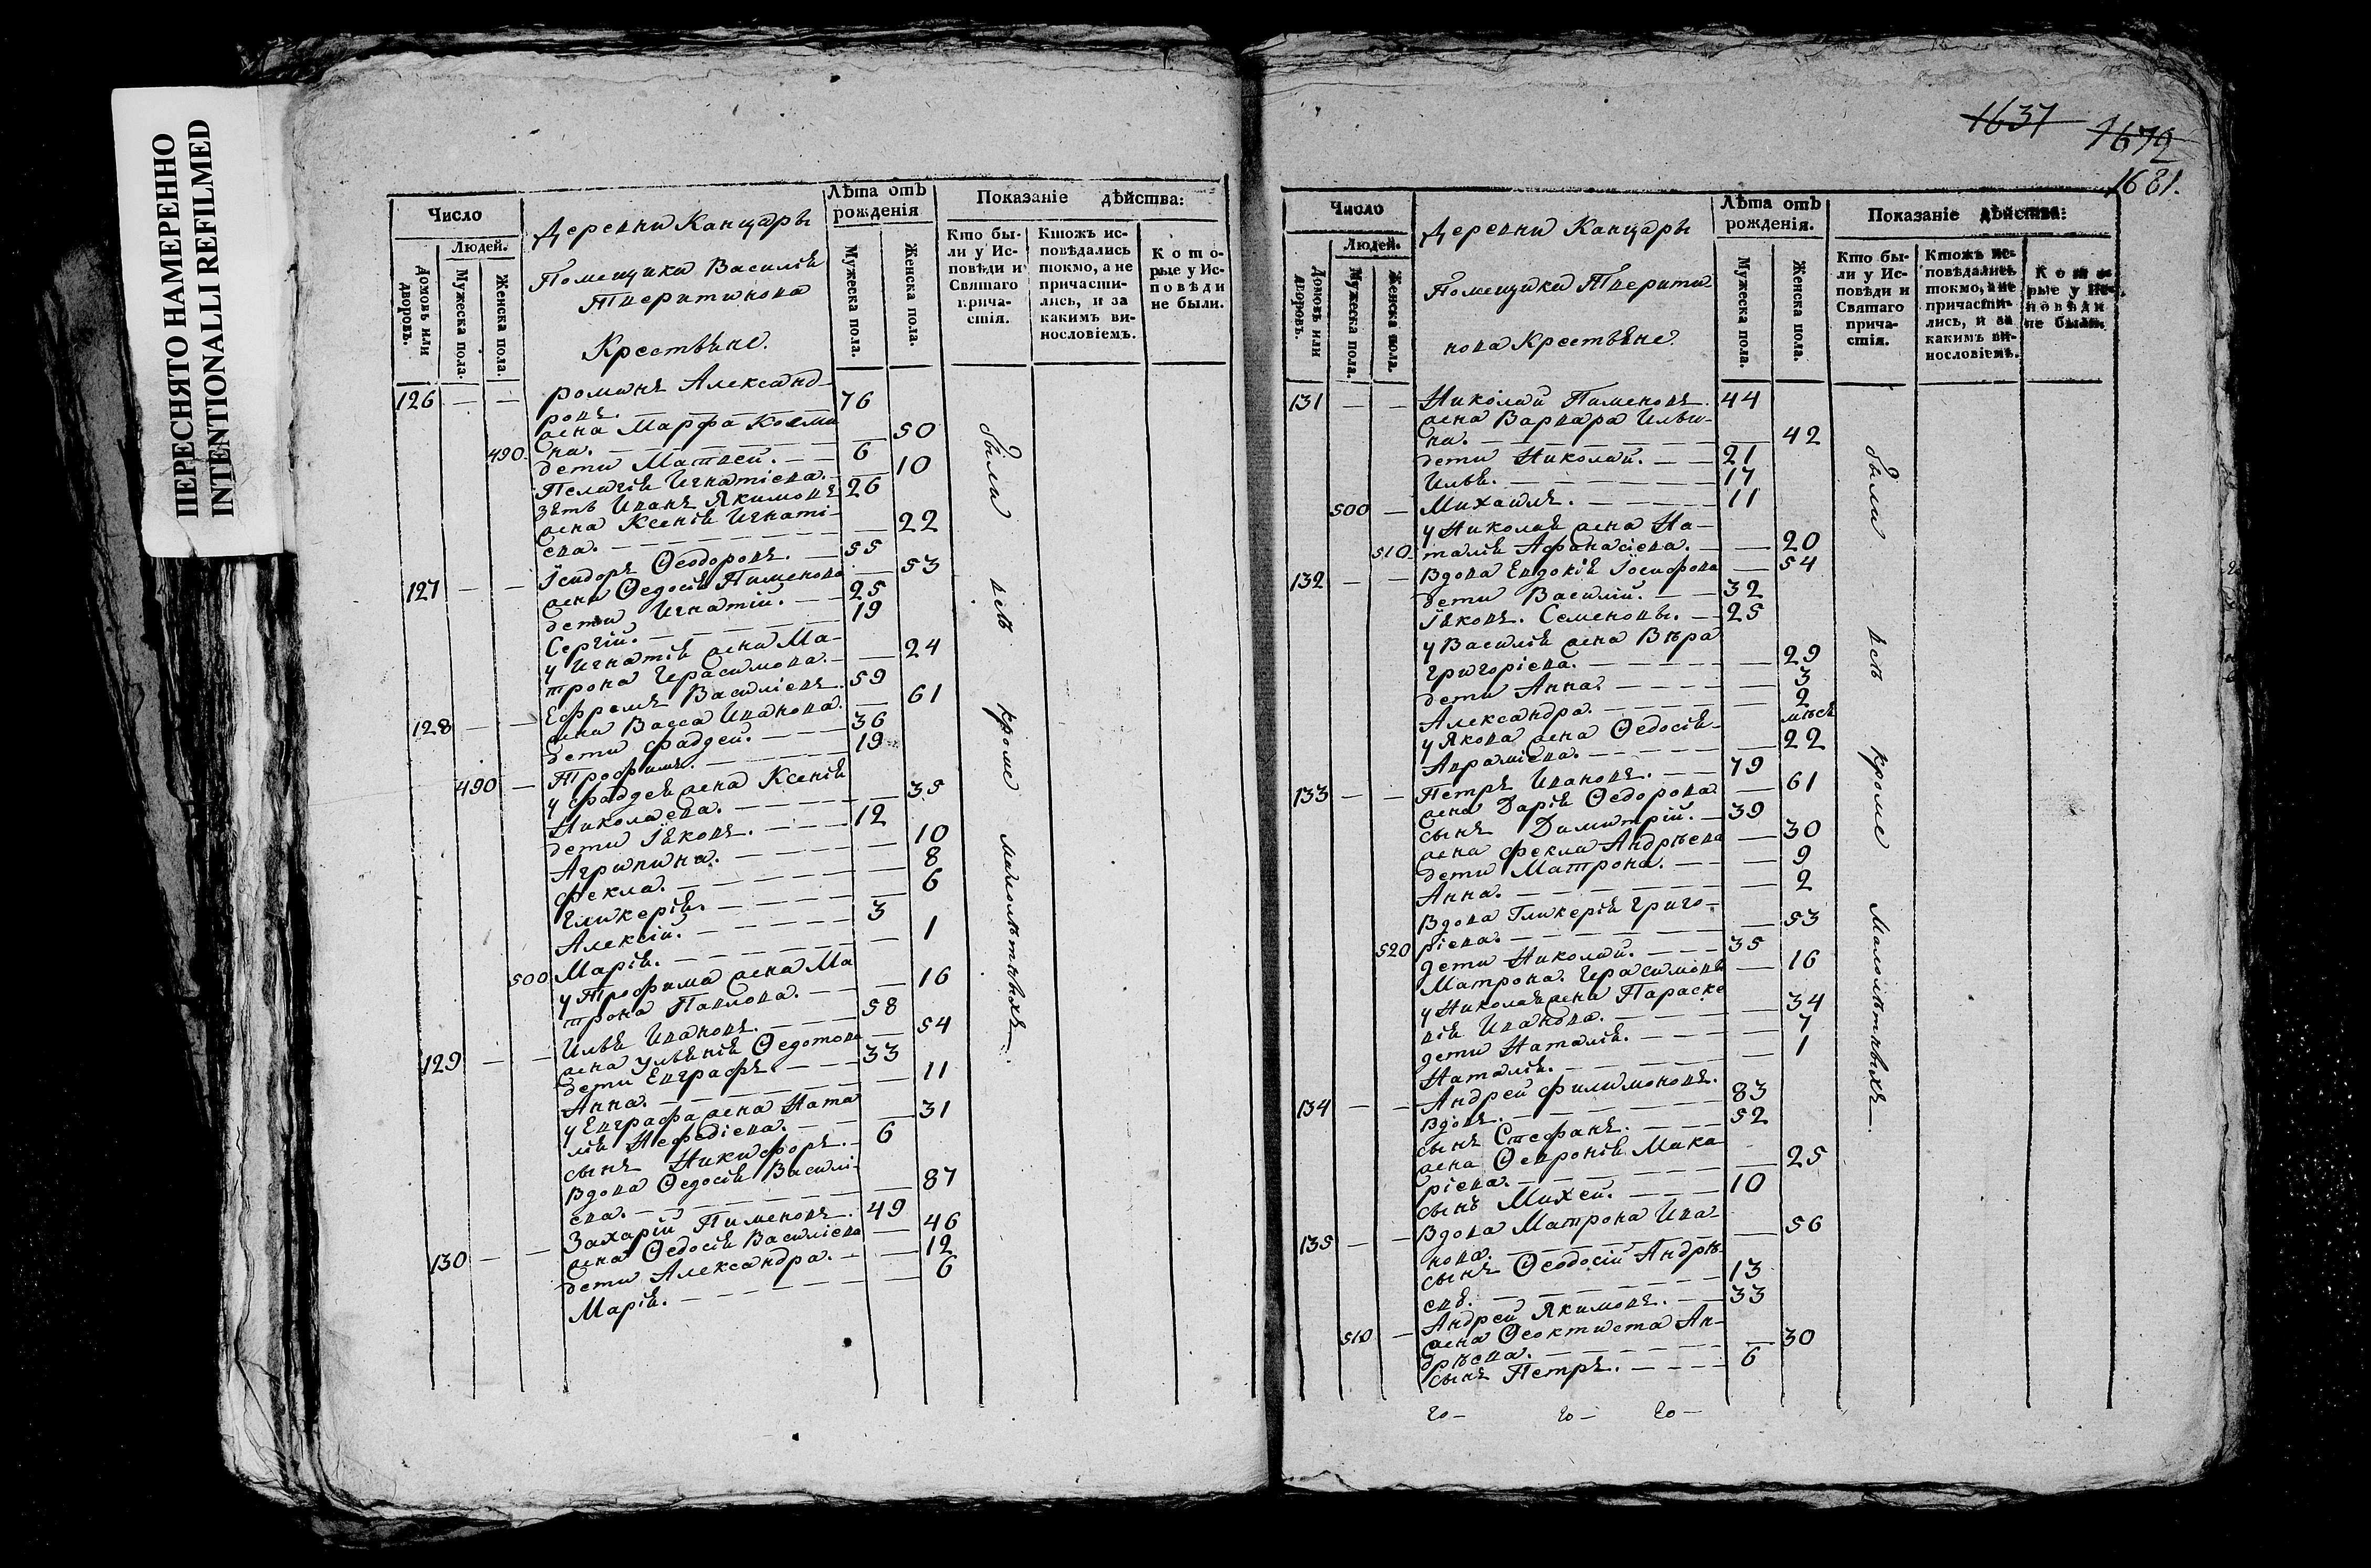 ПЕРЕСНЯТО НАМЕРЕННО
INTENTIONALLI REFILMED
Число
Людей.
Домовъ или дворовъ.
Мужеска пола.
Женска пола.
Деревни Канцары
Помещика Василія
Тверитинова
Крестьяне.
Лѣта отъ рожденія
Мужеска пола.
Женска пола.
Показаніе дѣйства:
Кто бы-
ли у Ис-
повѣди и
Святаго
прича-
стія.
Ктожъ ис-
повѣдались
токмо, а не
причасти-
лись, и за
какимъ ви-
нословіемъ.
Кото-
рые у Ис-
повѣди
не были.
126 — — романъ Александ-
ровъ. 76
жена Марфа Козми
490 на. — 50
дети Матвей. — 6
Пелагія Игнатіева. — 10
зять Иванъ Якимовъ 26
жена Ксенія Игнаті-
ева. — 22
127 — — Ісидоръ Ѳеодоровъ. — 55
жена Ѳедосія Пименова — 53
дети Игнатій. — 25
Сергій. — 19
у Игнатія жена Ма-
трона Герасимова. — 24
128 — — Ефремъ Василіевъ. 59
жена Васса Иванова. — 61
дети Фаддей. — 36
490 — Трофимъ. — 19
у Фаддея жена Ксенія
Николаева. — 35
дети Іяковъ. — 12
Агрипина. — 10
Фекла. — 8
Гликерія. — 6
Алексій. — 3
500 Марія. — 1
у Трофима жена Ма
трона Павлова. — 16
129 — — Илья Ивановъ. — 58
жена Ульянія Ѳедотова — 54
дети Евграфъ. — 33
Анна. — 11
у Евграфа жена Ната
лія Нефедіева. — 31
сынъ Никифоръ. — 6
Вдова Ѳедосія Василі-
ева. — 87
130 — — Захарій Пименовъ. 49
жена Ѳедосія Василіева — 46
дети Александра. — 12
Марія. — 6
были всѣ кроме малолѣтныхъ
1637
1672
1681.
Число
Людей.
Домовъ или дворовъ.
Мужеска пола.
Женска пола.
Деревни Канцары
Помещика Тверити
нова Крестьяне
Лѣта отъ рожденія.
Мужеска пола.
Женска пола.
Показаніе дѣйства:
Кто бы-
ли у Ис-
повѣди и
Святаго
прича-
стія.
Ктожъ ис-
повѣдались
токмо, а не
причасти-
лись, и за
какимъ ви-
нословіемъ.
Кото-
рые у Ис-
повѣди
не были.
131 — — Николай Пименовъ. 44
жена Варвара Ильи-
на. — 42
дети Николай. — 21
Илья. — 17
500 — Михаилъ. — 11
у Николая жена На-
510 талія Афанасіева. — 20
132 — — Вдова Евдокія Іосифова — 54
дети Василій. — 32
Іяковъ. Семеновы. — 25
у Василія жена Вѣра
Григоріева. — 29
дети Анна. — 3
Александра. — 2
мѣсе
у Якова жена Ѳедосія
Авраміева. — 22
133 — — Петръ Ивановъ. — 79
жена Дарія Ѳедорова. — 61
сынъ Димитрій. — 39
жена Фекла Андрѣева — 30
дети Матрона. — 9
Анна. — 2
Вдова Гликерія Григо-
520 ріева. — 53
дети Николай. — 35
Матрона. Герасимовы — 16
у Николая жена Параске
вія Иванова. — 34
дети Наталія. — 7
Наталія. — 1
134 — — Андрей Филимоновъ.
вдовъ. — 83
сынъ Стефанъ. — 52
жена Ѳевронія Мака
ріева. — 25
сынъ Михей. — 10
135 — — Вдова Матрона Ива-
нова. — 56
сынъ Ѳеодосій Андрѣ-
евъ. — 13
510 — Андрей Якимовъ. — 33
жена Ѳеоктиста Ан-
дрѣева. — 30
сынъ Петръ. — 6
были всѣ кроме малолѣтныхъ